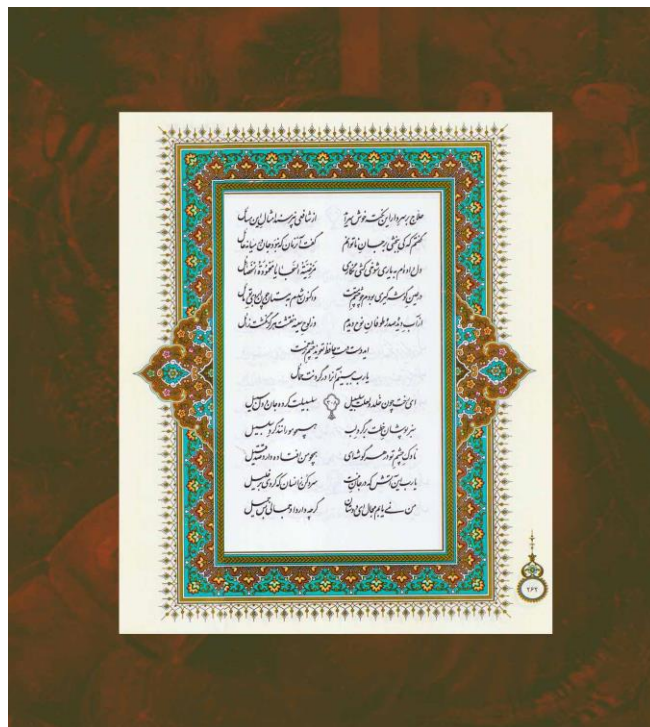 حلاج بر سر دار این نکته خوش سراید از شافعی نپرسند امثال این مسائل
گفتم که کی ببخشی بر جان ناتوانم گفت آن زمان که نبود جان در میانه حائل
دل داده‌ام به یاری شوخی کشی نگاری مرضیّة السّجایا محمودة الخصائل
در عین گوشه‌گیری بودم چو چشم مستت و اکنون شدم به مستان چون ابروی تو مایل
از آب دیده صد ره طوفان نوح دیدم وز لوح سینه نقشت هرگز نگشت زائل
ای دوست دست حافظ تعویذ چشم زخمست
یارب ببینم آنرا در گردنت حمائل
ای رخت چون خلد و لعلت سلسبیل سلسبیلت کرده جان و دل سبیل
سبز پوشان خطت بر گرد لب همچو مورانند گرد سلسبیل
ناوک چشم تو در هر گوشه‌ای همچو من افتاده دارد صد قتیل
یارب این آتش که در جان منست سرد کن زانسان که کردی بر خلیل
من نمی‌یابم مجال ای دوستان گرچه دارد او جمالی بس جمیل
۲۶۲